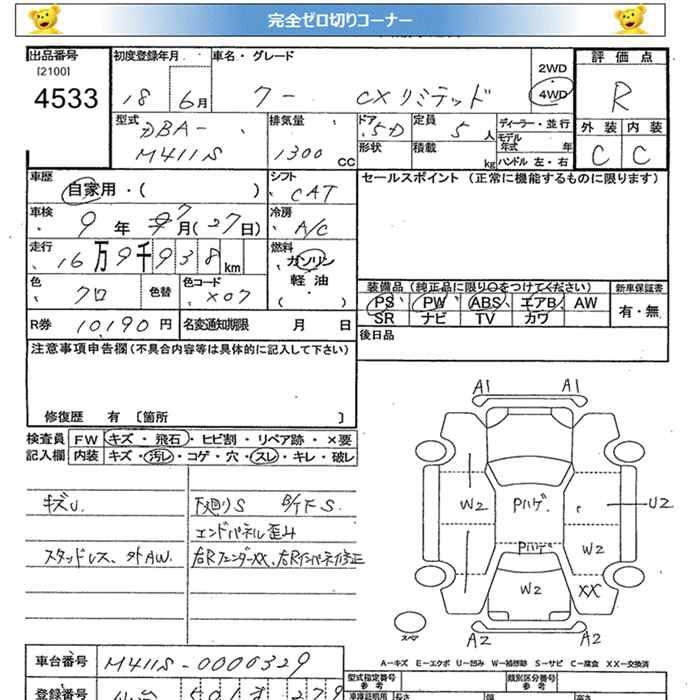 完全ゼロ切りコーナー
出品番号 初度登録年月 車名・グレード 2WD 評価点
[2100]
4533 18 6月 クー CXリミテッド 4WD R
型式 排気量 ドア 定員 ディーラー・並行 外装 内装
DBA- 5D 5人 モデル年式 年
M411S 1300 cc 形状 積載 kg ハンドル 左・右 C C
車歴 シフト セールスポイント (正常に機能するものに限ります)
自家用・( ) CAT
車検 9年 7月(27日) 冷房 A/C
走行 16万9千938km 燃料 ガソリン
軽油
( )
色 クロ 色替 色コード X07
装備品 (純正品に限り○をつけてください) 新車保証書
PS PW ABS エアB AW 有・無
SR ナビ TV カワ
R券 10,190円 名変通知期限 月 日
後日品
注意事項申告欄(不具合内容等は具体的に記入して下さい)
修復歴 有 [箇所 ]
検査員 FW キズ・飛石・ヒビ割・リペア跡・×要
記入欄 内装 キズ・汚レ・コゲ・穴・スレ・キレ・破レ
キズU. 下廻りS B/TFS.
エンドパネル歪み
スタッドレス、外AW. 右RフェンダーXX、右Rインパネ修正
A1 A1
W2 Pハゲ U2
Pハゲ W2
W2 XX
スペア A2 A2
A-キズ E-エクボ U-凹み W-補修跡 S-サビ C-腐食 XX-交換済
車台番号 M411S-0006329
型式指定番号 類別区分番号
参考 参考
登録番号
車庫証明用 長さ 幅 高さ